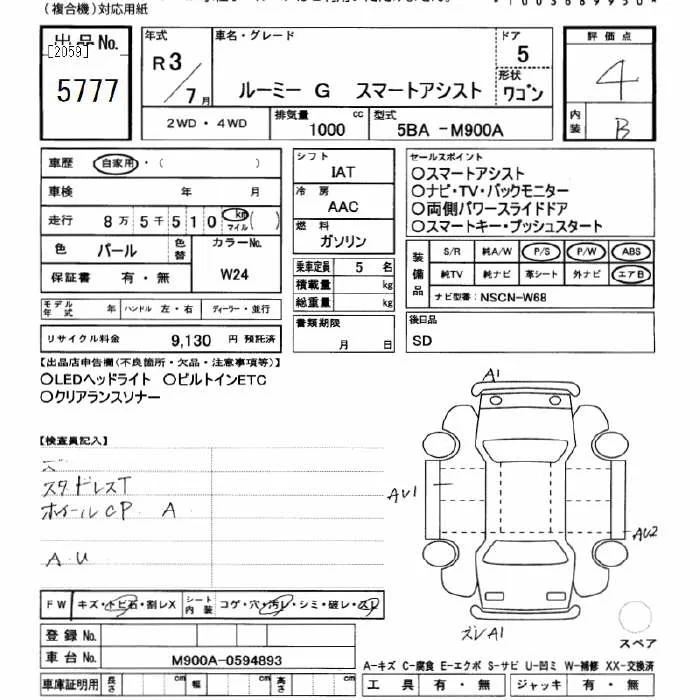 (複合機)対応用紙
出品No.
[2059]
5777
年式
R3/7月
車名・グレード
ルーミー G スマートアシスト
ドア
5
形状
ワゴン
評価点
4
内装
B
2WD・4WD
排気量
1000 cc
型式
5BA -M900A
車歴 自家用・( )
車検 年 月
走行 8万5千510 km マイル ( )
色 パール
色替
カラーNo.
W24
保証書 有・無
モデル年式 年
ハンドル 左・右
ディーラー・並行
リサイクル料金 9,130 円 預託済
シフト
IAT
冷房
AAC
燃料
ガソリン
乗車定員 5 名
積載量 kg
総重量 kg
書類期限
月 日
セールスポイント
○スマートアシスト
○ナビ・TV・バックモニター
○両側パワースライドドア
○スマートキー・プッシュスタート
装備品
S/R 純A/W P/S P/W ABS
純TV 純ナビ 革シート 外ナビ エアB
ナビ型番: NSCN-W68
後日品
SD
【出品店申告欄(不良箇所・欠品・注意事項等)】
○LEDヘッドライト ○ビルトインETC
○クリアランスソナー
【検査員記入】
スタドレスT
ホイールCP A
A U
A1
AU1
AU2
ズレA1
スペア
FW キズ・トビ石・割レX
シート内装 コゲ・穴・汚レ・シミ・破レ・スレ
登録No.
車台No. M900A-0594893
車庫証明用 長さ cm 幅 cm 高さ cm
A-キズ C-腐食 E-エクボ S-サビ U-凹ミ W-補修 XX-交換済
工具 有・無 ジャッキ 有・無